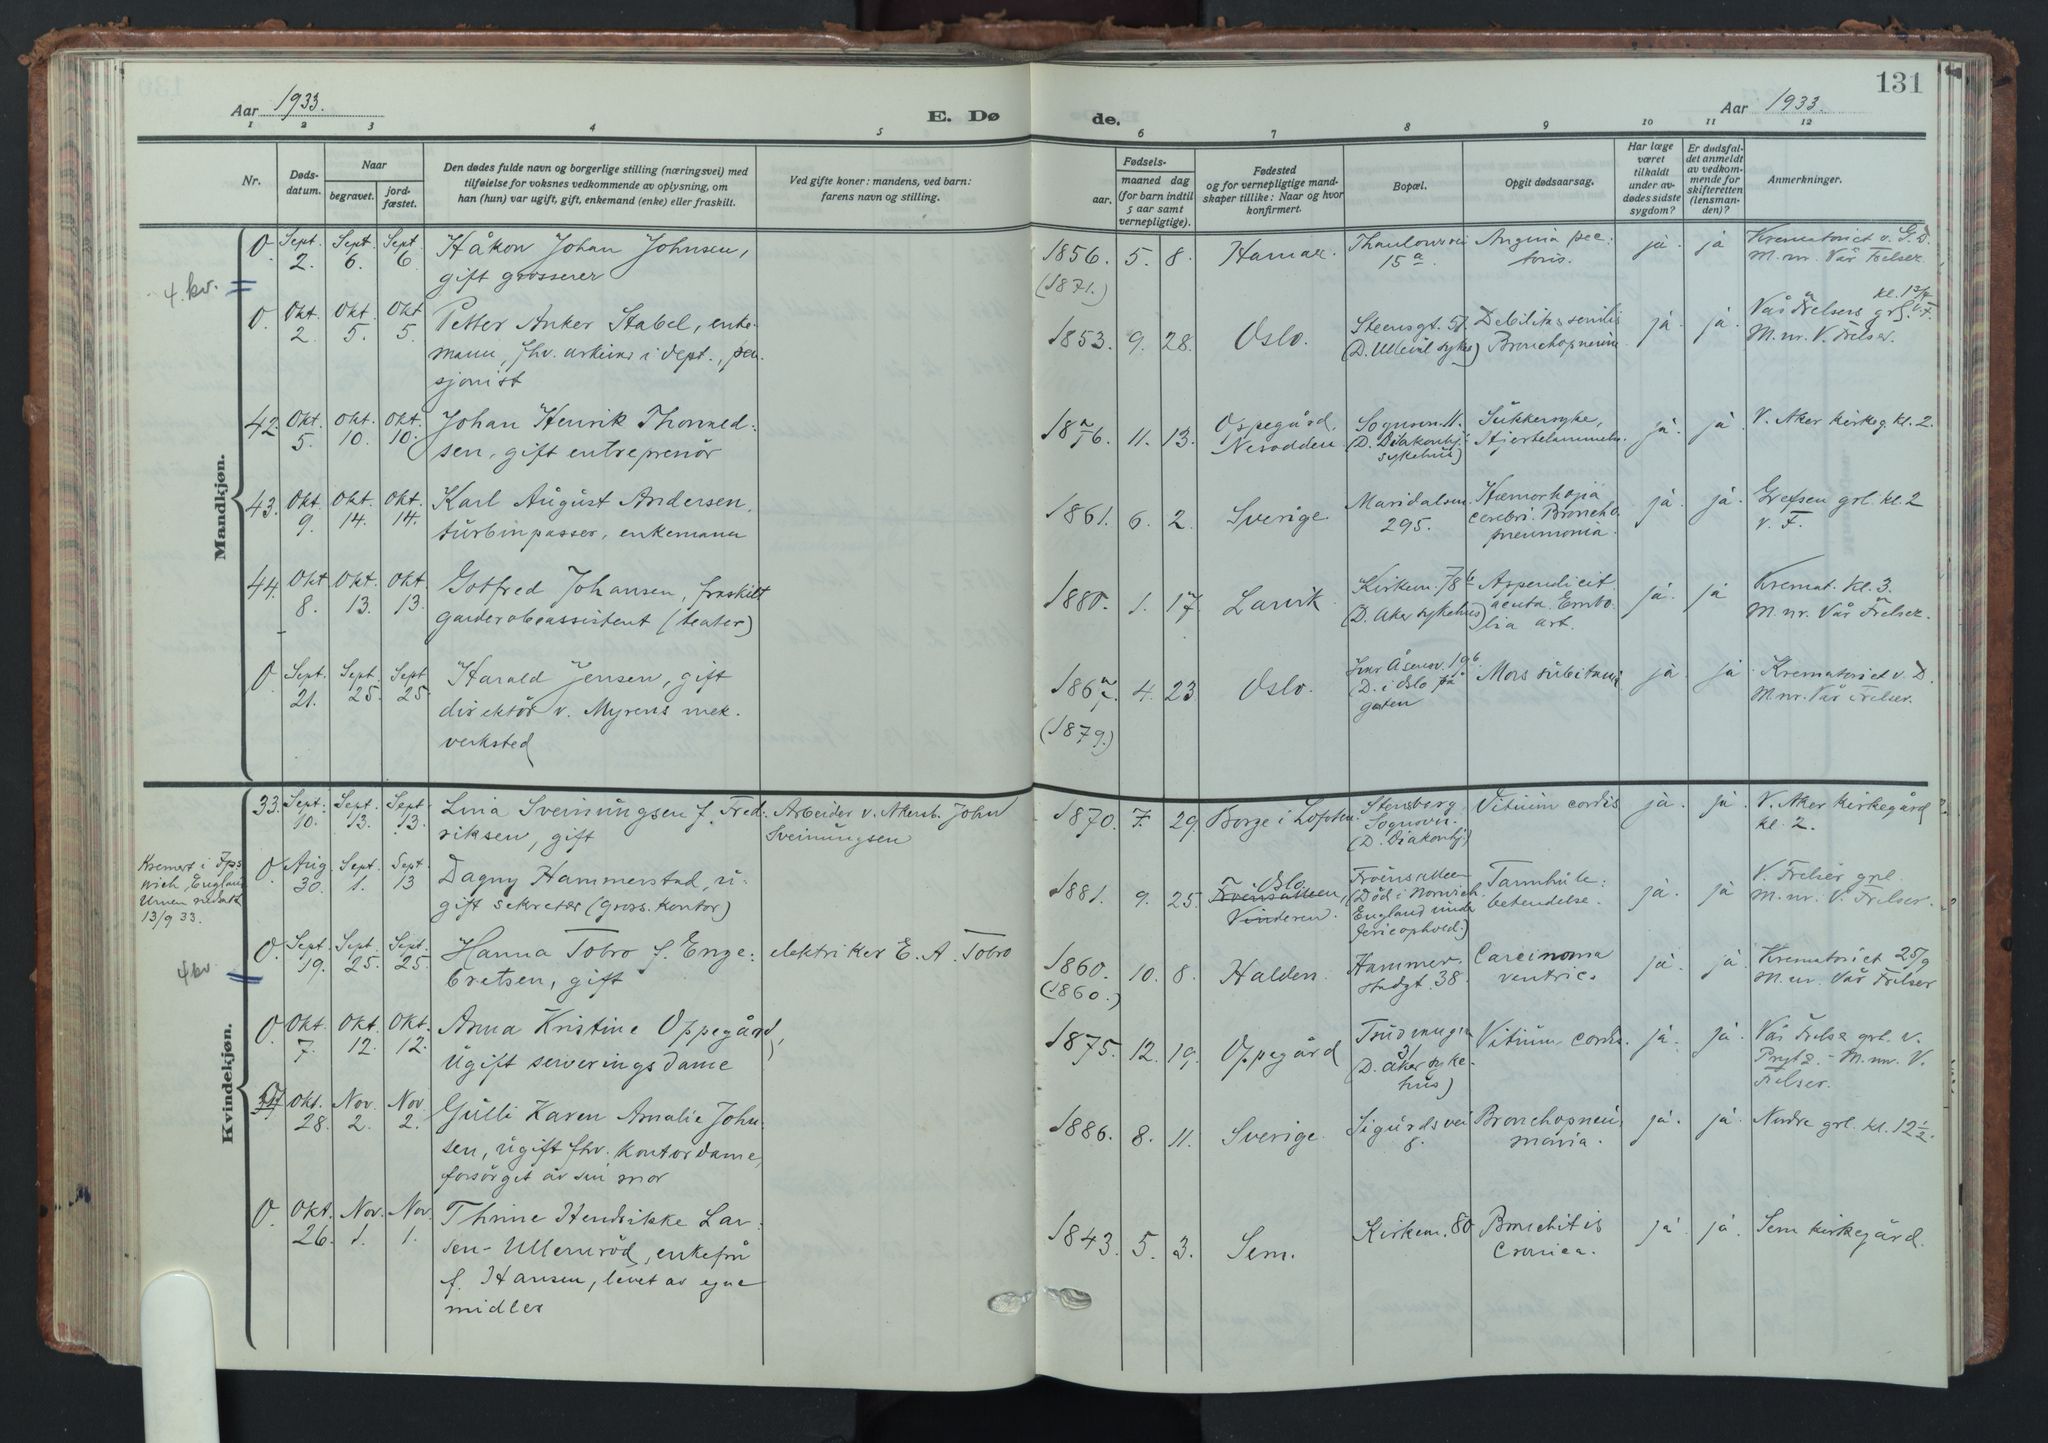 131
Aar 1933.
E. Døde.
Aar 1933.
1 2 3 4 5 6 7 8 9 10 11 12
Nr.
Døds-
datum.
Naar
begravet.
jord-
fæstet.
Den dødes fulde navn og borgerlige stilling (næringsvei) med
tilføielse for voksnes vedkommende av oplysning, om
han (hun) var ugift, gift, enkemand (enke) eller fraskilt.
Ved gifte koner: mandens, ved barn:
farens navn og stilling.
Fødsels-
aar.
maaned dag
(for barn indtil
5 aar samt
vernepligtige).
Fødested
og for vernepligtige mand-
skaper tillike: Naar og hvor
konfirmert.
Bopæl.
Opgit dødsaarsag.
Har læge
været
tilkaldt
under av-
dødes sidste
sygdom?
Er dødsfal-
det anmeldt
av vedkom-
mende for
skifteretten
(lensman-
den)?
Anmerkninger.
Mandkjøn.
4. kv.
O Sept. 2. Sept. 6. Sept. 6
Håkon Johan Johnsen,
gift grosserer
1856. 5. 8. Hamar.
(1871.)
Thaulowsvei
15a
Angina pec-
toris.
ja. ja
Krematoriet v. G. D.
M. nr. Vår Frelser.
O. Okt. 2. Okt. 5. Okt 5.
Petter Anker Stabel, enke-
mann, fhv. arkivar i dept., pen-
sjonist
1853. 9. 28. Oslo.
Steensgt. 5
(D. Ullevål syke)
Debilitas senilis
Bronchopneum.
ja. ja.
Vår Frelsers grl.
M. nr. V. Frelser.
42. Okt. 5. Okt. 10. Okt. 10.
Johan Henrik Thorvald-
sen, gift entreprenør
1876. 11. 13. Oppegård,
Nesodden
Sognsvn. 11.
(D. Diakonhj.
sykehus)
Sukkersyke,
Hjertelammelse.
ja. ja.
V. Aker kirkeg. kl. 2.
43. Okt. 9. Okt. 14. Okt. 14.
Karl August Andersen,
turbinpasser, enkemann
1861. 6. 2. Sverige.
Maridalsvn.
295.
Hæmorhagia
cerebri. Broncho
pneumonia.
ja. ja.
Grefsen grl. kl. 2
v. F.
44. Okt 8. Okt. 13. Okt 13.
Gotfred Johansen, fraskilt
garderobeassistent (teater)
1880. 1. 17. Larvik.
Kirkevn. 78b
(D. Aker sykehus)
Appendicit.
acuta. Embo-
lia art.
ja. ja
Kremat. kl. 3.
M. nr. Vår Frelser.
O Sept. 21. Sept. 25. Sept 25.
Harald Jensen, gift
direktør v. Myrens mek.
verksted
1867. 4. 23. Oslo.
(1879.)
Åsensv. 19b
(D. i Oslo på
gaten
Mors subitanea
ja. ja.
Krematoriet v. D.
M. nr. Vår Frelser.
Kvindekjøn.
33. Sept. 10. Sept. 13. Sept. 13.
Lina Sveinungsen f. Fred-
riksen, gift
Arbeider v. Akersb. John
Sveinungsen
1870. 7. 29. Borge i Lofoten
Stensberg
Sognsvn.
(D. Diakonhj.)
Vitium cordis
ja. ja.
V. Aker kirkegård
kl. 2.
Kremert i Ips-
wich, England
Urnen nedsatt
13/9 33.
O. Aug 30. Sept. 1. Sept 13
Dagny Hammerstad, u-
gift sekretær (gross. kontor)
1881. 9. 25. Oslo
Frøensalleen,
Vinderen.
Frøensalleen
(Død i Norwich
England under
ferieophold.)
Tarmhule-
betendelse.
ja. ja
V. Frelser grl.
M. nr. V. Frelser.
4 kv
O. Sept 19. Sept. 25. Sept. 25.
Hanna Tobro f. Enge-
bretsen, gift
elektriker E. A. Tobro
1860. 10. 8. Halden.
(1860.)
Hammer-
stadgt. 38.
Carcinoma
ventric.
ja. ja.
Krematoriet 25/9
M. nr. Vår Frelser
O. Okt. 7. Okt. 12. Okt. 12.
Anna Kristine Oppegård,
ugift serveringsdame
1875. 12. 19. Oppegård
3/
(D. Aker syke-
hus)
Vitium cordis.
ja. ja.
Vår Frelser grl. v.
Prytz. - M. nr. V.
Frelser.
Okt. 28. Nov. 2. Nov 2.
Gulli Karen Amalie John-
sen, ugift fhv. kontordame,
forsørget av sin mor
1886. 8. 11. Sverige.
Sigurdsvei
8.
Bronchopneu-
monia.
ja. ja.
Nordre grl. kl. 12 1/2.
O. Okt. 26. Nov. 1. Nov. 1.
Thrine Hendrikke Lar-
sen-Ullernrød, enkefru
f. Hansen, levet av egne
midler
1843. 5. 3. Sem.
Kirkevn. 80
Bronchitis
Cronica.
ja ja.
Sem kirkegård.